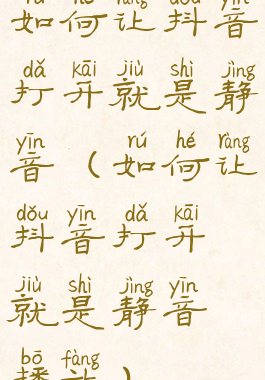 rú hé ràng dǒu yīn
如何让抖音
dǎ kāi jiù shì jìng
打开就是静
yīn rú hé ràng
音(如何让
dǒu yīn dǎ kāi
抖音打开
jiù shì jìng yīn
就是静音
bō fàng
播放)